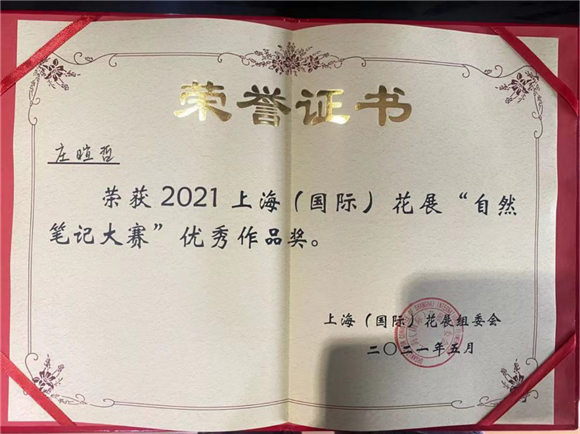 荣誉证书
庄暄哲
荣获2021上海（国际）花展“自然
笔记大赛”优秀作品奖。
上海（国际）花展组委会
二〇二一年五月